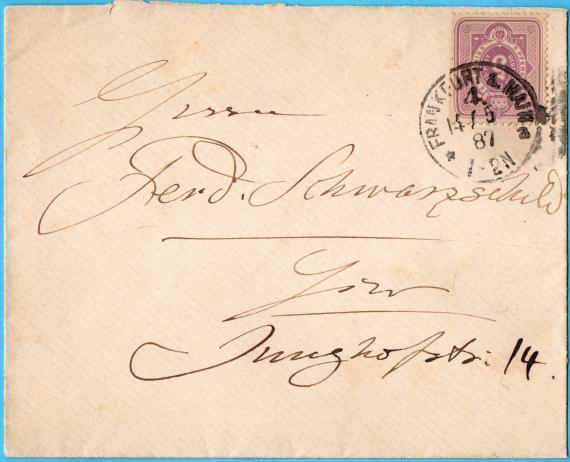 FRANKFURT a. MAIN
4.
14/5
87
1-2N
Herrn
Ferd. Schwarzschild
Hier
Junghofstr. 14.